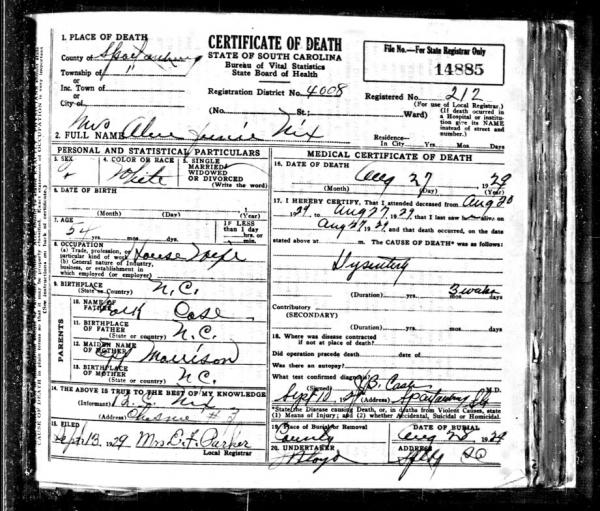 1. PLACE OF DEATH
County of Spartanburg
Township of "
or
Inc. Town of
or
City of
CERTIFICATE OF DEATH
STATE OF SOUTH CAROLINA
Bureau of Vital Statistics
State Board of Health
File No.—For State Registrar Only
14885
Registration District No. 4008
Registered No. 212
(For use of Local Registrar.)
(No. St.; Ward)
(If death occurred in a Hospital or institution give its NAME instead of street and number.)
2. FULL NAME Mrs Nix
Residence—
In City Yrs. Mos. Days
PERSONAL AND STATISTICAL PARTICULARS
3. SEX
4. COLOR OR RACE White
5. SINGLE MARRIED WIDOWED OR DIVORCED
(Write the word)
6. DATE OF BIRTH
(Month) (Day) (Year)
7. AGE
54 yrs. mos. ds.
IF LESS than 1 day
hrs. or min.
8. OCCUPATION
(a) Trade, profession, or particular kind of work House Wife
(b) General nature of Industry, business, or establishment in which employed (or employer)
9. BIRTHPLACE
(State or Country) N.C.
PARENTS
10. NAME OF FATHER Case
11. BIRTHPLACE OF FATHER
(State or country) N.C.
12. MAIDEN NAME OF MOTHER Morrison
13. BIRTHPLACE OF MOTHER
(State or country) N.C.
14. THE ABOVE IS TRUE TO THE BEST OF MY KNOWLEDGE
(Informant) Nix
(Address) Chesnee # 3
15. FILED
Sept 13, 1929 Mrs Parker
Local Registrar
MEDICAL CERTIFICATE OF DEATH
16. DATE OF DEATH
Aug 27 1929
(Month) (Day) (Year)
17. I HEREBY CERTIFY, That I attended deceased from Aug 20
1929, to Aug 27, 1929, that I last saw alive on
Aug 27, 1929, and that death occurred, on the date
stated above at m. The CAUSE OF DEATH* was as follows:
Dysentery
(Duration) yrs. 3 weeks mos. days
Contributory
(SECONDARY)
(Duration) yrs. mos. days
18. Where was disease contracted
if not at place of death?
Did operation precede death date of
Was there an autopsy?
What test confirmed diagnosis?
(Signed) M.D.
Sept 10, 1929 (Address) Spartanburg
*State the Disease causing Death, or, in deaths from Violent Causes, state
(1) Means of Injury; and (2) whether Accidental, Suicidal or Homicidal.
19. Place of Burial or Removal
County
DATE OF BURIAL
Aug 28 1929
20. UNDERTAKER
Floyd
SC